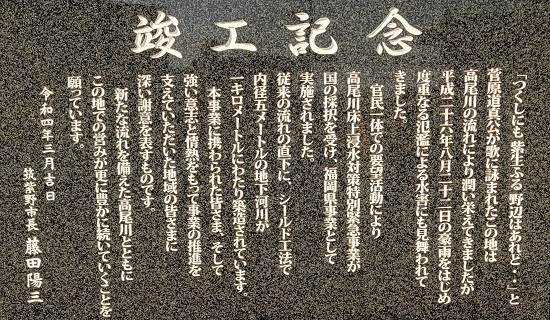 竣工記念
「つくしにも 紫生ふる 野辺はあれど・・」と
菅原道真公が歌に詠まれたこの地は
高尾川の流れにより潤い栄えてきましたが
平成二十六年八月二十二日の豪雨をはじめ
度重なる氾濫による水害にも見舞われて
きました。
官民一体での要望活動により
高尾川床上浸水対策特別緊急事業が
国の採択を受け、福岡県事業として
実施されました。
従来の流れの直下に、シールド工法で
内径五メートルの地下河川が
一キロメートルにわたり築造されています。
本事業に携わられた皆さま、そして
強い意志と情熱をもって事業の推進を
支えていただいた地域の皆さまに
深い謝意を表すものです。
新たな流れを備えた高尾川とともに
この地での営みが更に豊かに続いていくことを
願っています。
令和四年三月吉日
筑紫野市長 藤田陽三